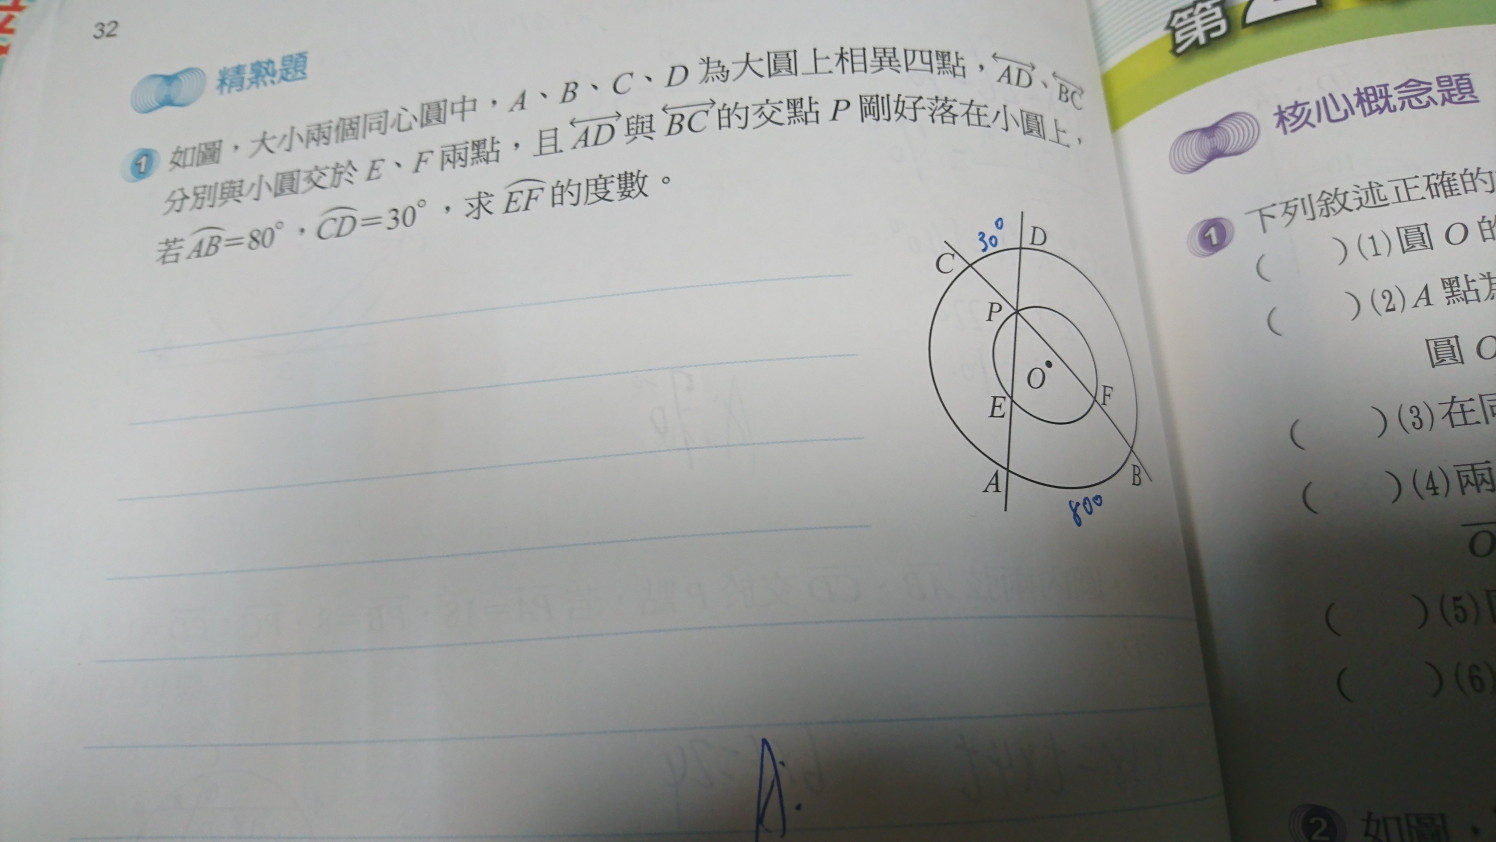 32
精熟題
1 如圖,大小兩個同心圓中,A、B、C、D 為大圓上相異四點,AD、BC
分別與小圓交於 E、F 兩點,且 AD 與 BC 的交點 P 剛好落在小圓上,
若 AB=80°,CD=30°,求 EF 的度數。
30°
D
C
P
O
E
F
A
B
80°
A:
第
核心概念題
1 下列敘述正確的
( )(1)圓 O 的
( )(2)A 點為
圓 O
( )(3)在同
( )(4)兩
O
( )(5)
( )(6)
2 如圖,